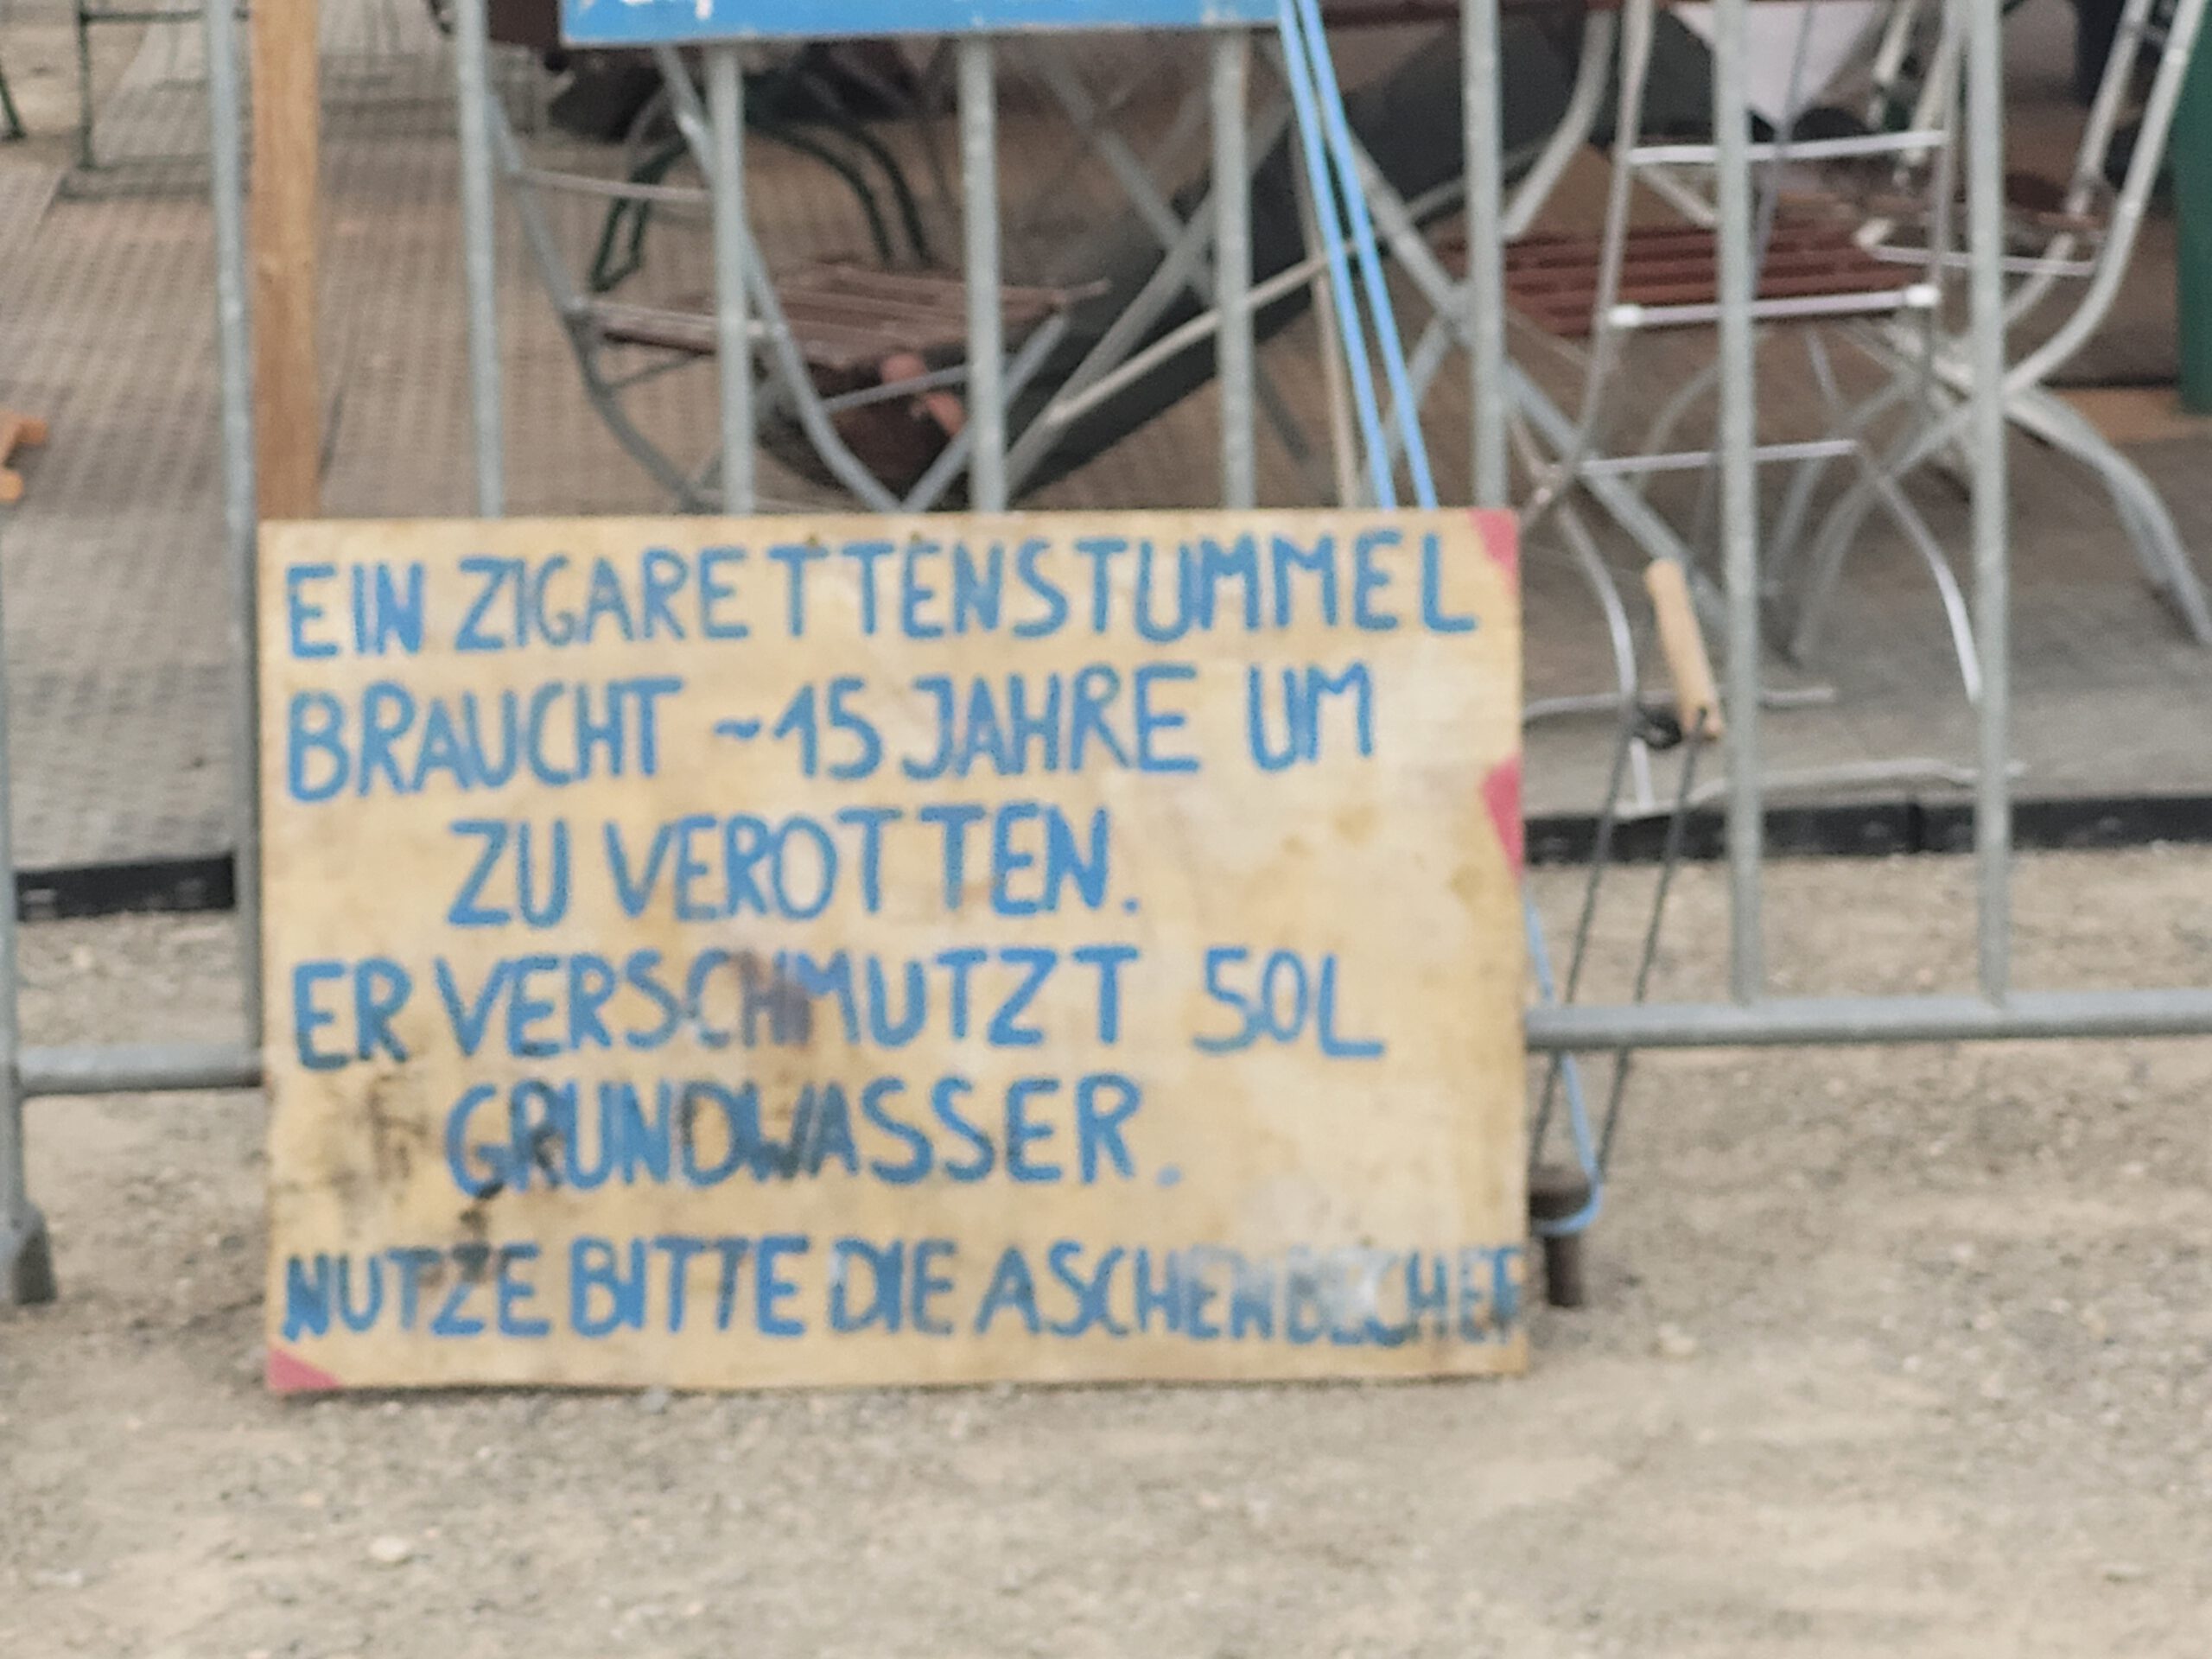 EIN ZIGARETTENSTUMMEL
BRAUCHT ~15 JAHRE UM
ZU VEROTTEN.
ER VERSCHMUTZT 50L
GRUNDWASSER.
NUTZE BITTE DIE ASCHENBECHER